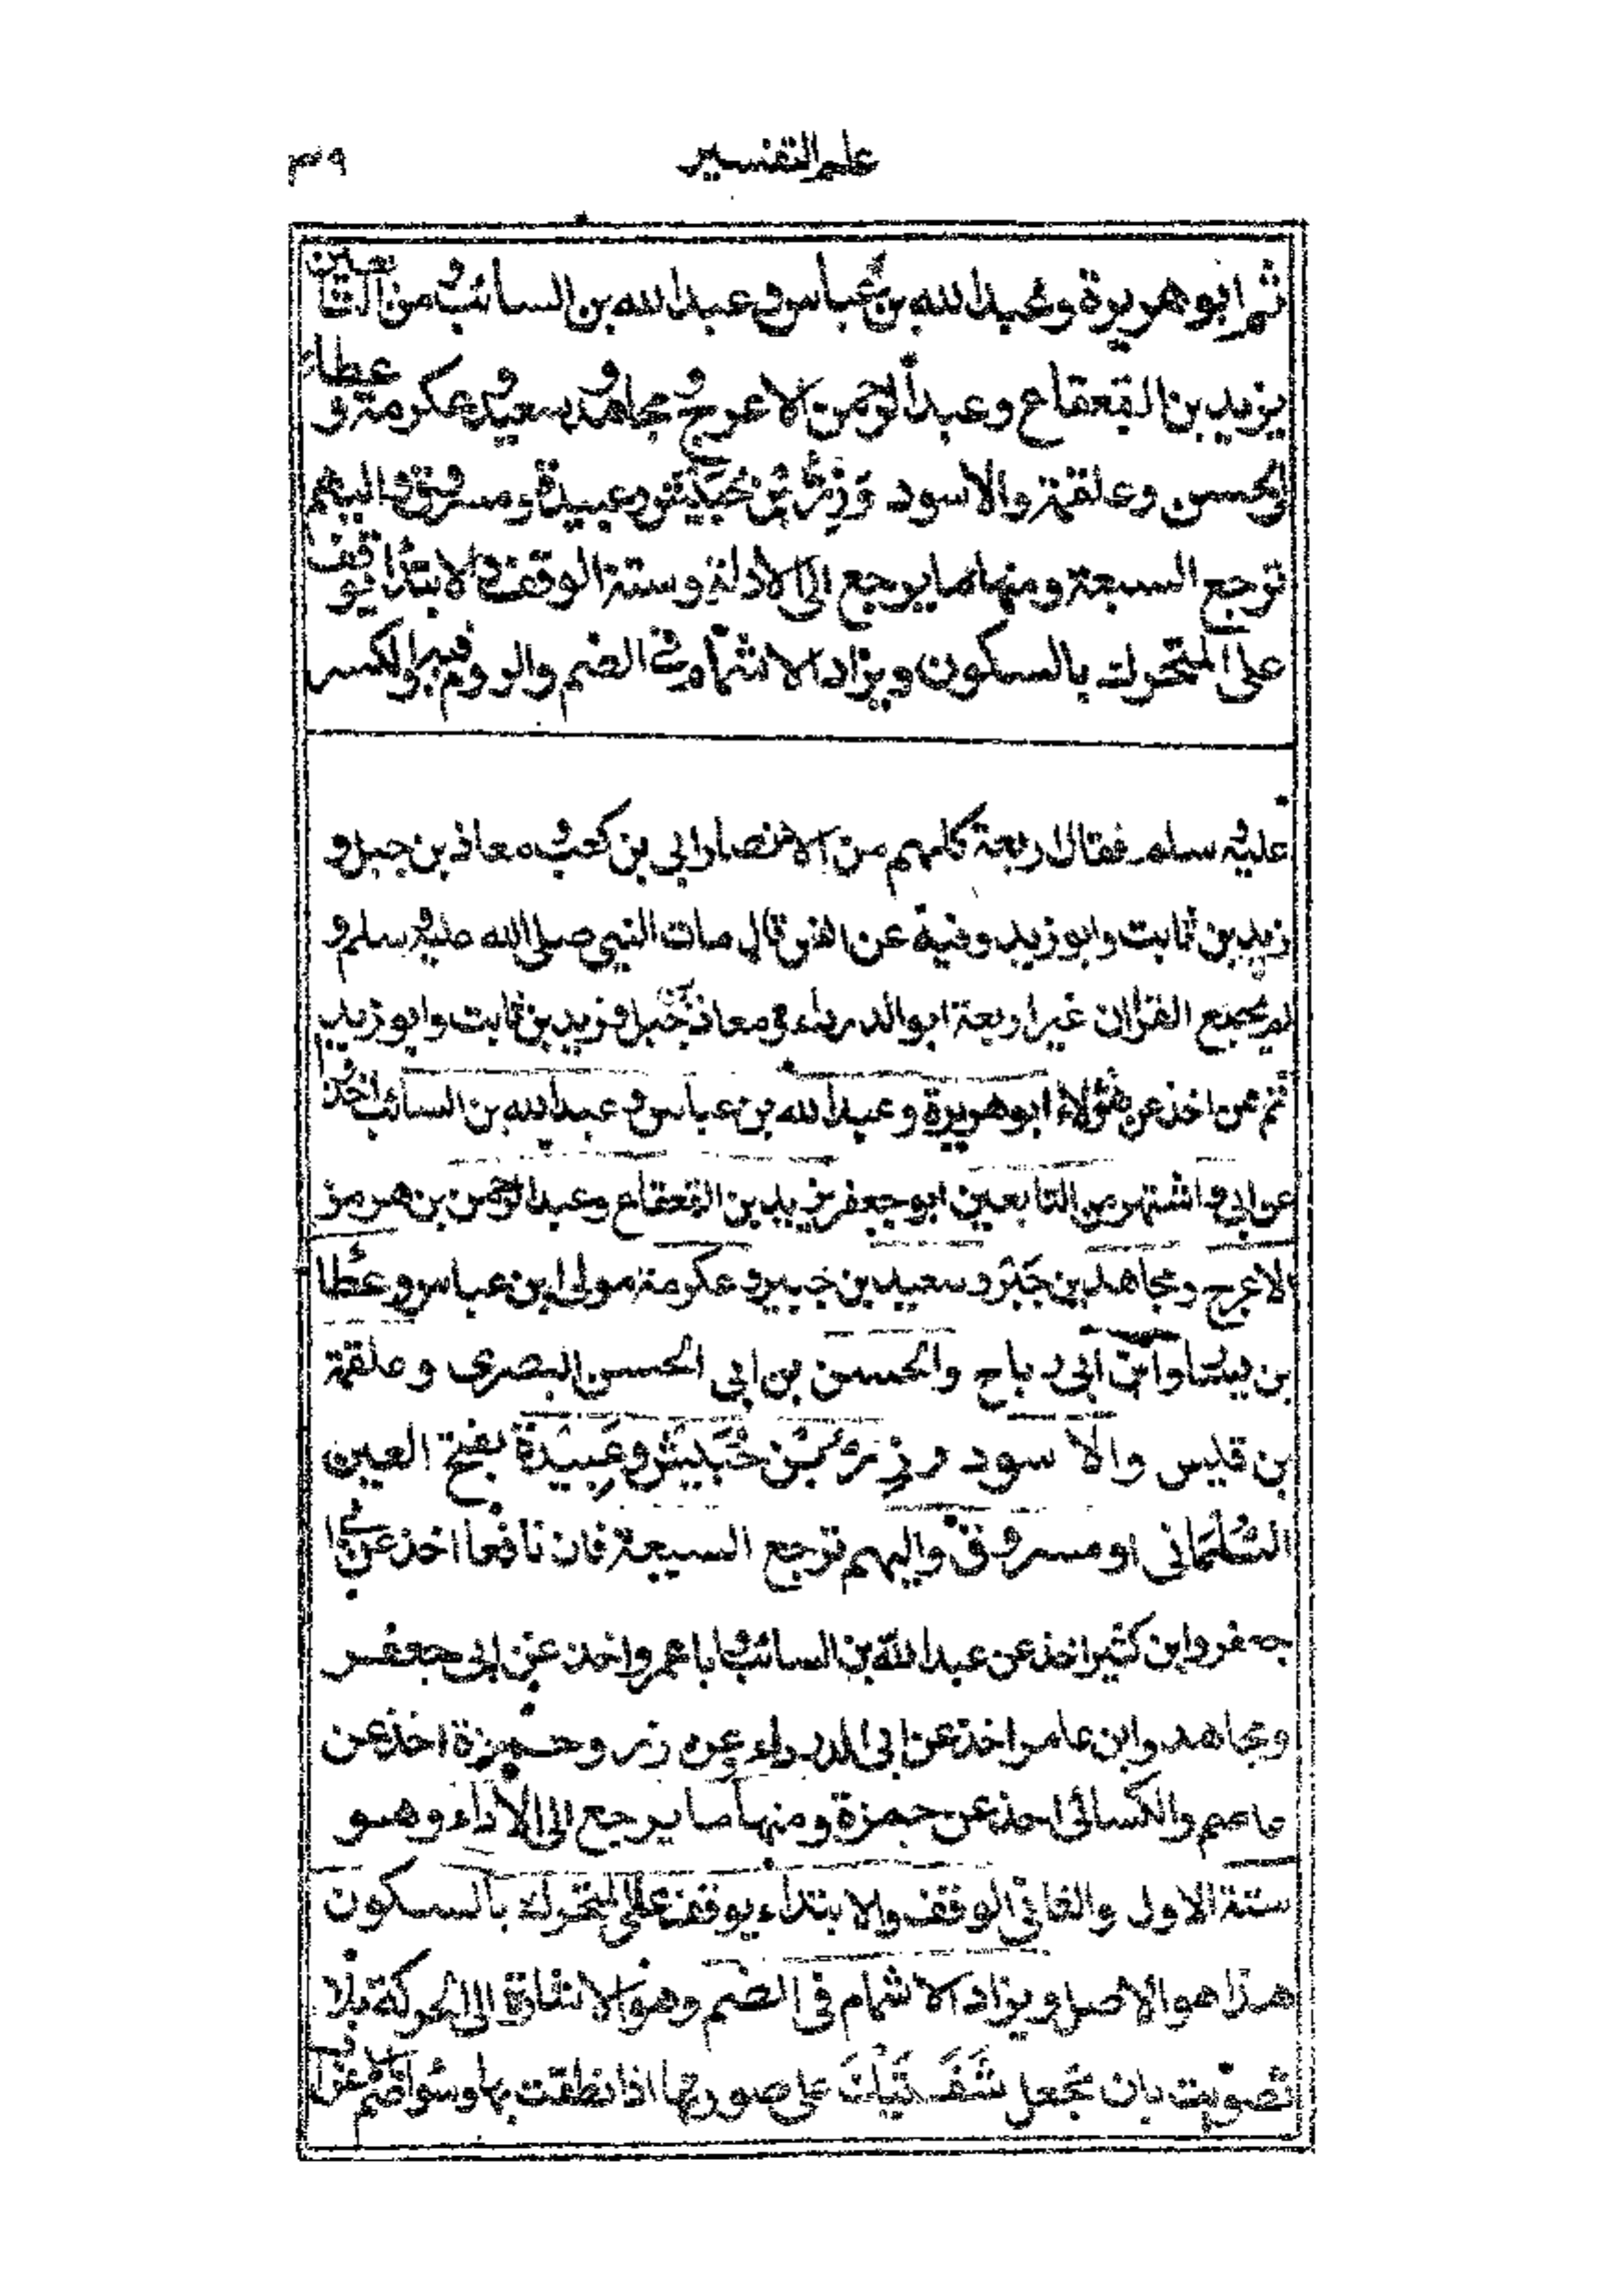 علم التفسير ٣٩
ثم ابو هريرة وعبد الله بن عباس وعبد الله بن السائب ومن التابعين
يزيد بن القعقاع وعبد الرحمن الاعرج ومجاهد وسعيد وعكرمة وعطاء
والحسن وعلقمة والاسود وَزِرُّ بْنُ حُبَيْشٍ وعبيدة ومسروق واليهم
ترجع السبعة ومنها ما يرجع الى الاداء وستة الوقف والابتداء يوقف
على المتحرك بالسكون ويزاد الاشمام في الضم والروم فيه والكسر
عليه وسلم فقال اربعة كلهم من الانصار ابي بن كعب ومعاذ بن جبل و
زيد بن ثابت وابو زيد وفيه عن انس قال مات النبي صلى الله عليه وسلم و
لم يجمع القران غير اربعة ابو الدرداء ومعاذ بن جبل وزيد بن ثابت وابو زيد
ثم عن اخذ عن هؤلاء ابو هريرة وعبد الله بن عباس وعبد الله بن السائب اخذوا
عن ابي واشتهر من التابعين ابو جعفر يزيد بن القعقاع وعبد الرحمن بن هرمز
الاعرج ومجاهد بن جَبْر وسعيد بن جبير وعكرمة مولى ابن عباس وعطاء
بن يسار وابن ابي رباح والحسن بن ابي الحسن البصري وعلقمة
بن قيس والاسود وزِرُّ بْنُ حُبَيْشٍ وعَبِيدَة بفتح العين
السَّلْمَاني ومسروق واليهم ترجع السبعة فان نافعا اخذ عن ابي
جعفر وابن كثير اخذ عن عبد الله بن السائب وابا عمرو اخذ عن ابي جعفر
ومجاهد وابن عامر اخذ عن ابي الدرداء وعن زر وحمزة اخذ عن
عاصم والكسائي اخذ عن حمزة ومنها ما يرجع الى الاداء وهو
ستة الاول والثاني الوقف والابتداء يوقف على المتحرك بالسكون
هذا هو الاصل ويزاد الاشمام في الضم وهو الاشارة الى الحركة بلا
تصويت بان تجعل شَفَتَيْكَ على صورتها اذا نطقت بها وسواء ضم